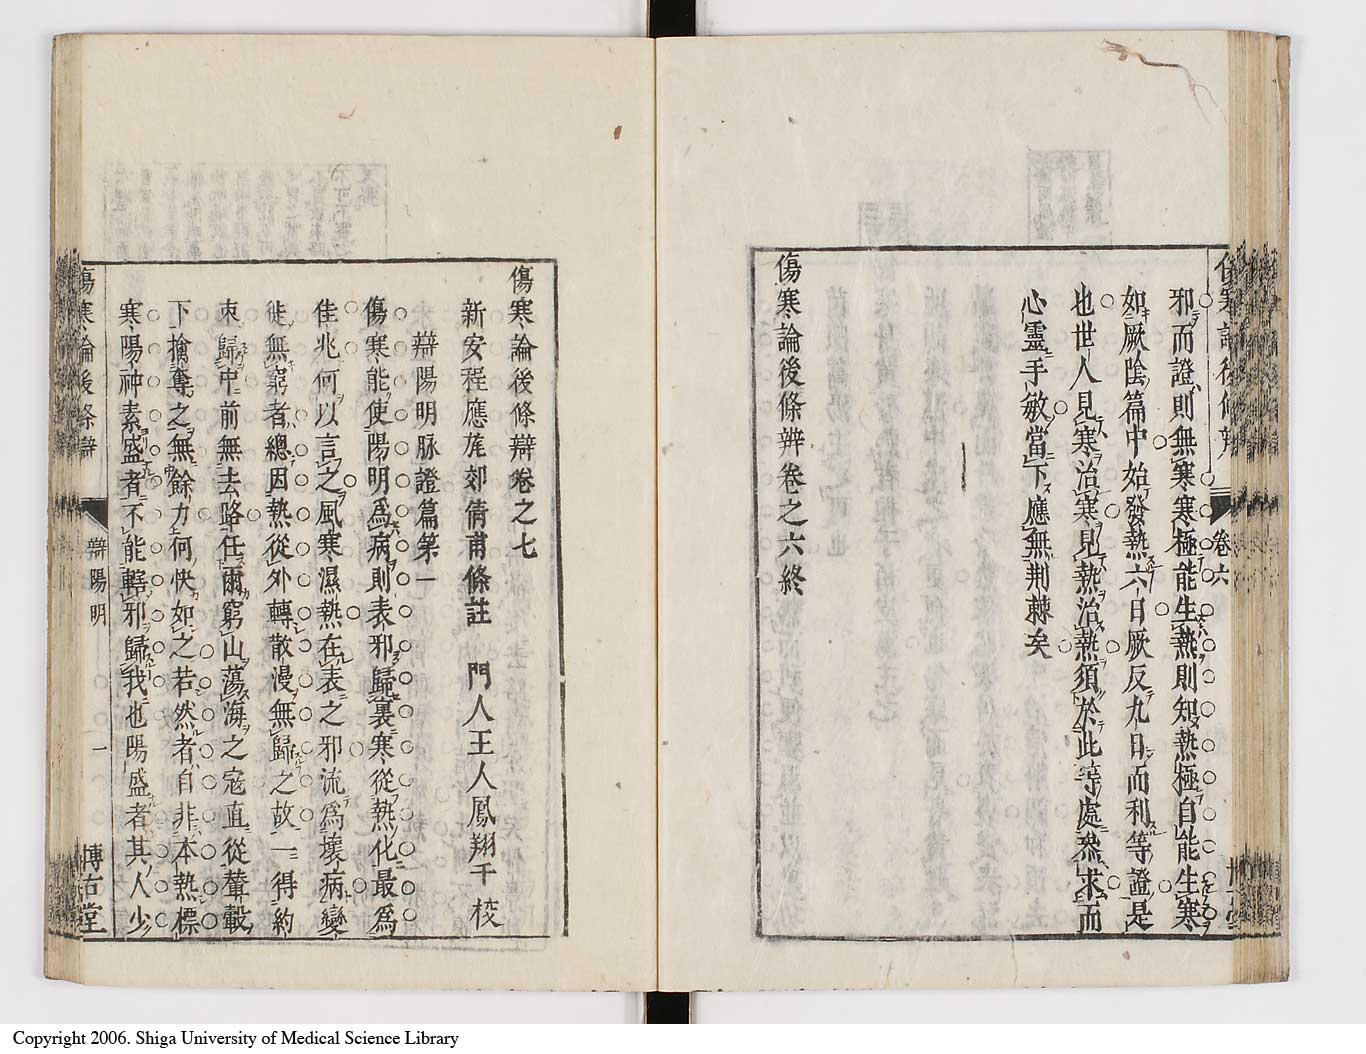 邪而證則無寒寒極能生熱則知熱極自能生寒
如厥陰篇中始發熱六日厥反九日而利等證是
也世人見寒治寒見熱治熱須於此等處叅求而
心靈手敏當下應無荆棘矣
傷寒論後條辨卷之六終
卷六
傷寒論後條辯卷之七
新安程應旄郊倩甫條註 門人王人鳳翔千校
辯陽明脉證篇第一
傷寒能使陽明爲病則表邪歸裏寒從熱化最爲
佳兆何以言之風寒濕熱在表之邪流爲壞病變
徙無窮者總因熱從外轉散漫無歸之故一得約
束歸中前無去路任爾窮山蕩海之寇直從輦轂
下擒奪之無餘力何快如之若然者自非本熱標
寒陽神素盛者不能轉邪歸我也陽盛者其人少
傷寒論後條辯
辯陽明
一
博古堂
Copyright 2006. Shiga University of Medical Science Library